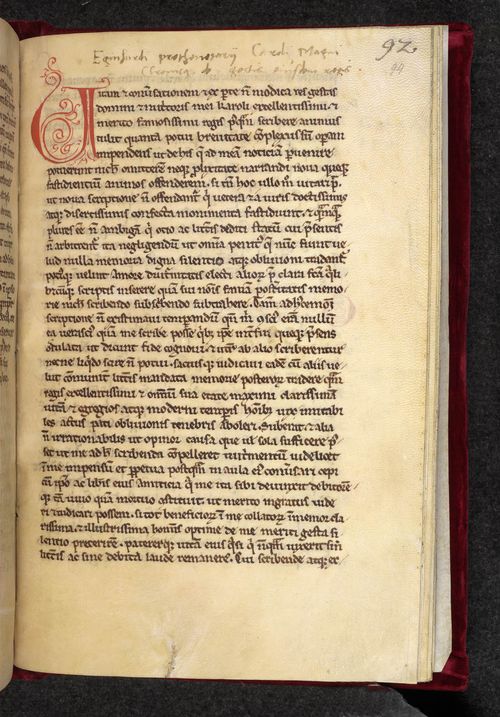 Eginhardi prothonotarij Caroli Magni
92
94
Vitam & conuersationem & ex parte nō modica res gestas
domini & nutritoris mei karoli excellentissimi &
merito famosissimi regis p̄ſq̄ scribere animus
tulit quanta potui breuitate cōplexus sū operam
impendens ut de his q̄ ad meā noticiā puenire
potuerunt nichil omitterem neq; plixitate narrandi noua queq;
fastidientiū animos offenderem. si tm̄ hoc ullo m̄ uitari p̄.
ut noua scriptione n̄ offendant̄ q̄ uetera & a uiris doctissimis
atq; disertissimis confecta monimenta fastidiunt. & q̄mq̄m
plures eē n̄ ambigā q̄ otio ac litt̄is dediti statū eui p̄sentis
n̄ arbitrent̄ ita negligendū ut omia penit⁹ q̄ nunc fiunt ue
lud nulla memoria digna silentio atq; obliuioni tradant̄
potiq; uelint amore diuturnitatis illecti alioꝝ p̄clara facta q̄li
bꝰcūq; scriptis inserere quā sui nōis famā posterītatis memo
rie nichil scribendo subtrahere. Tam̄ ab hꝰcemōi
scriptione n̄ existimaui temperandū qn̄ m̄ conscius erā nullū
ea ueracius quā me scribe posse qbꝰ ipse int̄fui queq; p̄sens
oculata ut dicunt fide cognoui. & utrū ab alio scriberentur
necne liqdo scire n̄ potui. satiusq; iudicaui eadē cū aliis ue
lut communit̄ litt̄is mandata memorie posteroꝝ tradere quā
regis excellentissimi & omniū sua etate maximi clarissimā
uitā & egregios atq; moderni temporis hoībꝰ uix imitabi
les actus pati obliuionis tenebris aboleri. Suberat & alia
n̄ irrationabilis ut opinor causa que uel sola sufficere p̄
set ut me ad h̄ scribenda compelleret nutrimentū uidelicet
in me impensū & perpetua postq̄m in aula ei⁹ conuersari cepi
cū ipō ac libis eius amicitia q̄ me ita sibi deuinxit debitorēe
q; tā uiuo quā mortuo constituit ut merito ingratus uide
ri & iudicari possem. si tot beneficioꝝ in me collatoꝝ inmemor cla
rissima & illustrissima hominis optime de me meriti gesta si
lentio preterirē. patererq; uitā eius q̄si q̄ nūq̄m uixerit sine
litt̄is ac sine debita laude remanere. Cui scribende atq; ex